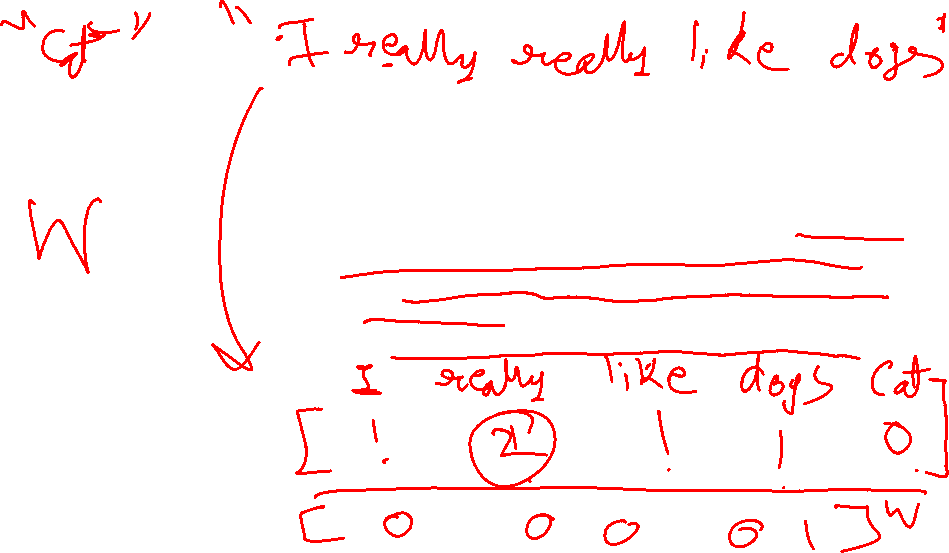 "Cat" "I really really like dogs"
W
I really like dogs Cat
[ 1 2 1 1 0 ]
[ 0 0 0 0 1 ] W